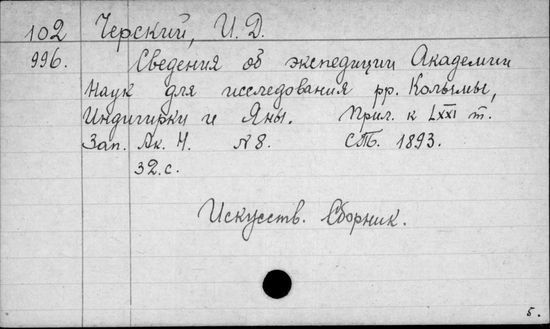 102 Черский, И. Д.
996. Сведения об экспедиции Академии
Наук для исследования рр. Колымы,
Индигирки и Яны. Прил. к LXXI т.
Зап. Ак. Н. № 8. СПБ. 1893.
32.с.
Искусств. Сборник.
5.